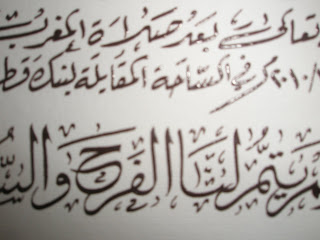 تعالى بعد صلاة المغرب
٢٠١٠/ م في الساحة المقابلة لبنك قطر
يتم لنا الفرح و